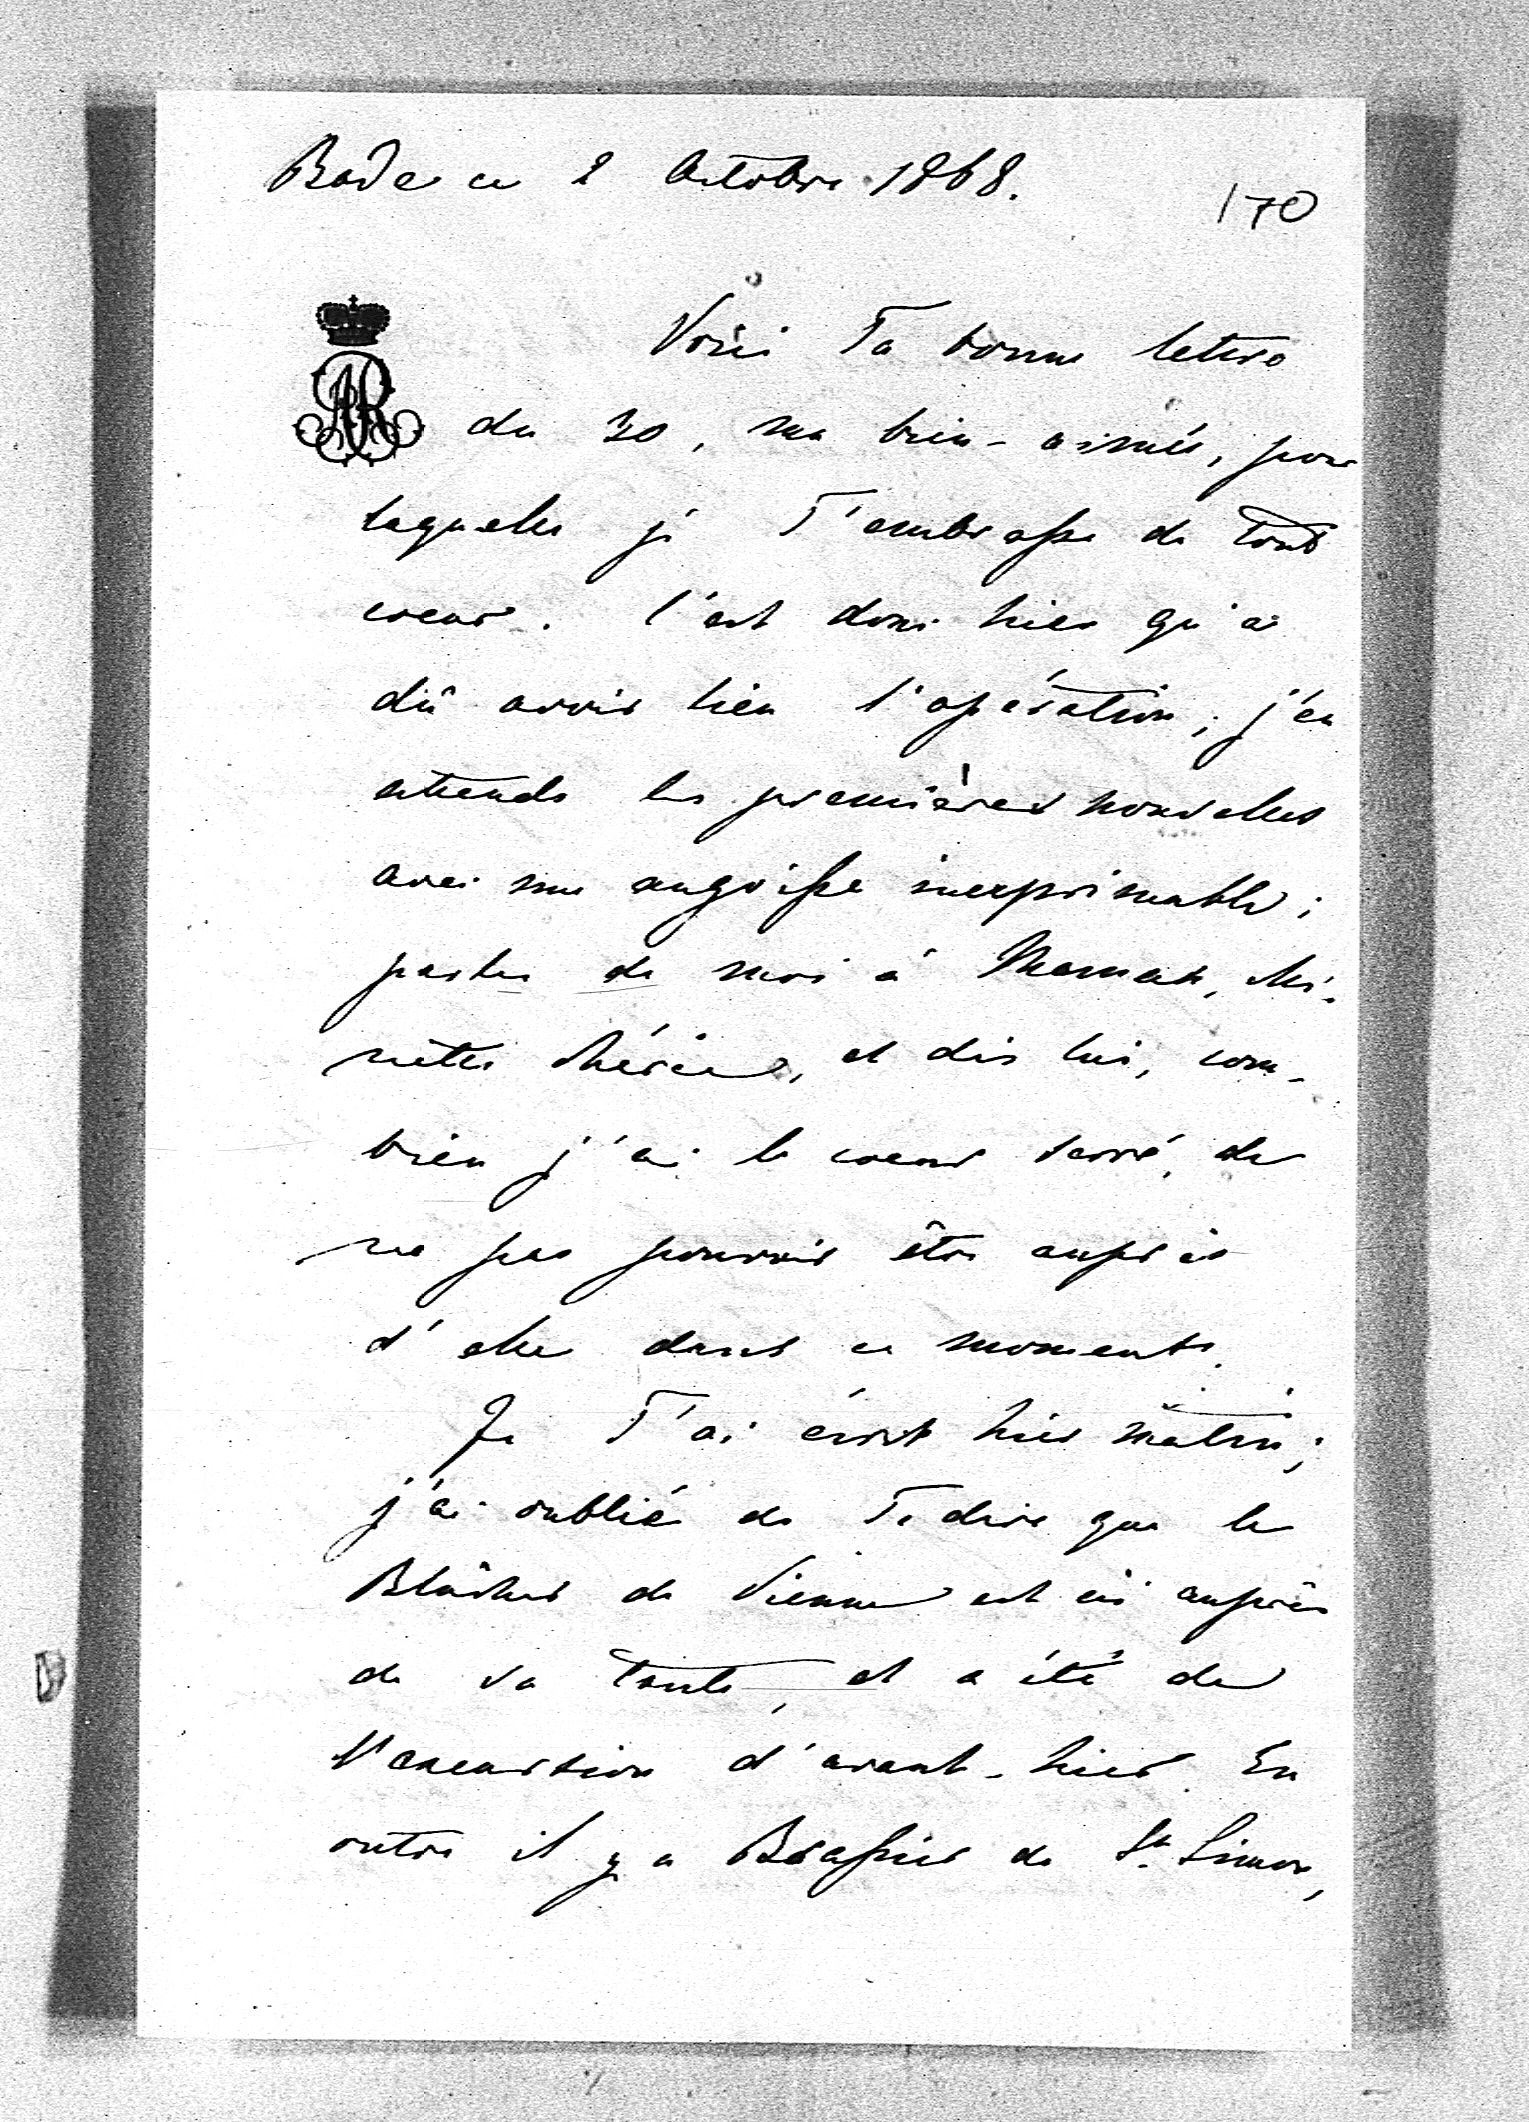 Bade ce 2 Octobre 1868.
170
Voici Ta bonne lettre
du 30, ma bien-aimée, pour
laquelle je T'embrasse de tout
coeur. C'est donc hier qu'a
dû avoir lieu l'opération; j'en
attends les premières nouvelles
avec une angoisse inexprimable;
parles de moi à Maman, Mi-
nette chérie, et dis lui, com-
bien j'ai le coeur serré, de
ne pas pouvoir être auprès
d'elle dans ce moment.
Je T'ai écrit hier matin;
j'ai oublié de Te dire que le
Blücher de Vienne est ici auprès
de sa tante, et a été de
l'excursion d'avant-hier. En
outre il y a Brassier de St. Simon,